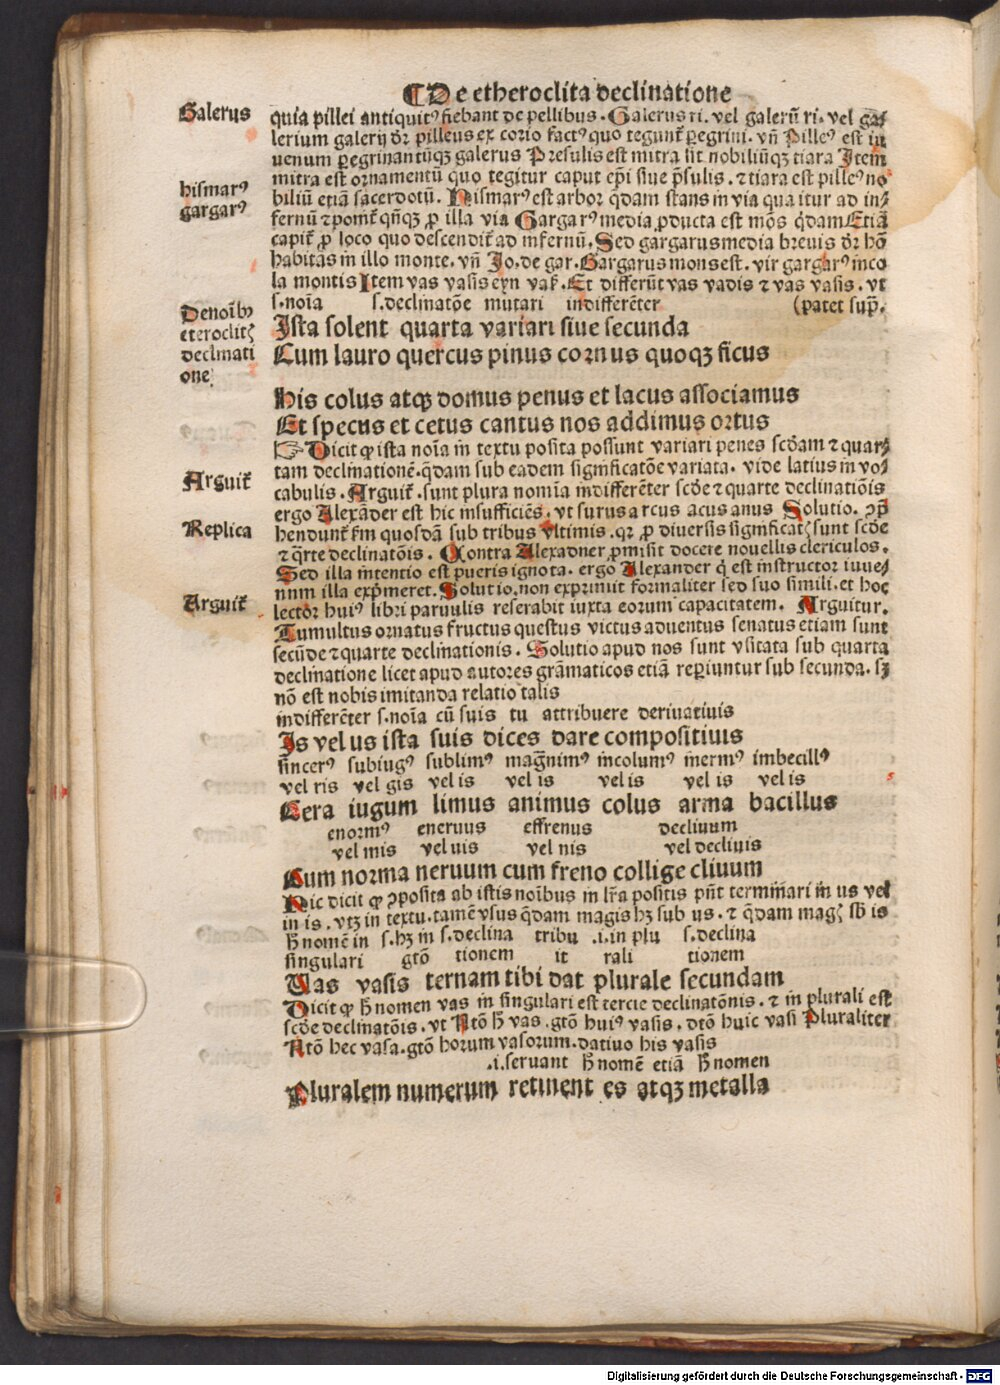 ⁋De etheroclita declinatione
Galerus
quia pillei antiquitꝰ fiebant de pellibus. Galerus ri. vel galerū ri. vel ga⸗
lerium galerij dr̄ pilleus ex corio factꝰ quo tegunt᷑ ꝑegrini. vn̄ Pilleꝰ est iu
uenum ꝑegrinantūqꝫ galerus Presulis est mitra sit nobiliūqꝫ tiara Item
mitra est ornamentū quo tegitur caput epi̅ siue p̄sulis. ⁊ tiara est pilleꝰ no
hismarꝰ
gargarꝰ
biliū etiā sacerdotū. Hismarꝰ est arbor q̄dam stans in via qua itur ad in⸗
fernū ⁊ pomit᷑ qn̄qꝫ ꝓ illa via Gargarꝰ media ꝓducta est mōs q̄dam Etiā
capit᷑ ꝓ loco quo descendit᷑ ad infernū. Sed gargarus media breuis dr̄ hō
habitās in illo monte. vn̄ Io. de gar. Gargarus mons est. vir gargarꝰ inco
la montis Item vas vasis eyn vaß. Et differūt vas vadis ⁊ vas vasis. vt
s. noīa s. declinatōe mutari indifferēter (patet supͣ.
Denoībꝰ
eteroclitꝭ
declinati
one
Ista solent quarta variari siue secunda
Cum lauro quercus pinus cornus quoqꝫ ficus
His colus atqꝫ domus penus et lacus associamus
Et specus et cetus cantus nos addimus ortus
☞Dicit ꝙ ista noīa in textu posita possunt variari penes scdam ⁊ quar⸗
tam declinationē. q̄dam sub eadem significatōe variata. vide latius in vo⸗
Arguit᷑
cabulis. Arguit᷑. sunt plura nomina indifferēter scdē ⁊ quarte declinatiōis
ergo Alexāder est hic insufficiēs. vt surus arcus acus anus Solutio. ꝯp̄
Replica
hendunt᷑ fm̄ quosdā sub tribus vltimis. qꝛ ꝓ diuersis significatꝭ sunt scdē
⁊ q̄rte declinatōis. Contra Alexadner ꝓmisit docere nouellis clericulos.
Sed illa intentio est pueris ignota. ergo Alexander q̇ est instructor iuue⸗
num illa exp̄meret. Solutio. non exprimit formaliter sed suo simili. et hoc
Arguit᷑
lector huiꝰ libri paruulis reserabit iuxta eorum capacitatem. Arguitur.
Tumultus ornatus fructus questus victus aduentus senatus etiam sunt
secūde ⁊ quarte declinationis. Solutio apud nos sunt vsitata sub quarta
declinatione licet apud autores grāmaticos etiā reꝑiuntur sub secunda. sꝫ
nō est nobis imitanda relatio talis
indifferēter s. noīa cū suis tu attribuere deriuatiuis
Is vel us ista suis dices dare compositiuis
sincerꝰ subiugꝰ sublimꝰ magnīmꝰ incolumꝰ inermꝰ imbecillꝰ
vel ris vel gis vel is vel is vel is vel is vel is
Cera iugum limus animus colus arma bacillus
enormꝰ eneruus effrenus decliuum
vel mis vel uis vel nis vel decliuis
Cum norma neruum cum freno collige cliuum
Hic dicit ꝙ ꝯposita ab istis noībus in lr̄a positis pn̄t terminari in us vel
in is. vtꝫ in textu. tamē vsus q̄dam magis hꝫ sub us. ⁊ q̄dam magꝭ sb̄ is
h̄ nomē in s. hꝫ in s. declina tribu .i. in plu s. declina
singulari gtō tionem it rali tionem
Uas vasis ternam tibi dat plurale secundam
Dicit ꝙ h̄ nomen vas in singulari est tercie declinatōnis. ⁊ in plurali est
scdē declinatōis. vt Ntō h̄ vas. gtō huiꝰ vasis. dtō huic vasi Pluraliter
Ntō hec vasa. gtō horum vasorum. datiuo his vasis
.i. seruant h̄ nomē etiā h̄ nomen
Pluralem numerum retinent es atqꝫ metalla
Digitalisierung gefördert durch die Deutsche Forschungsgemeinschaft - DFG